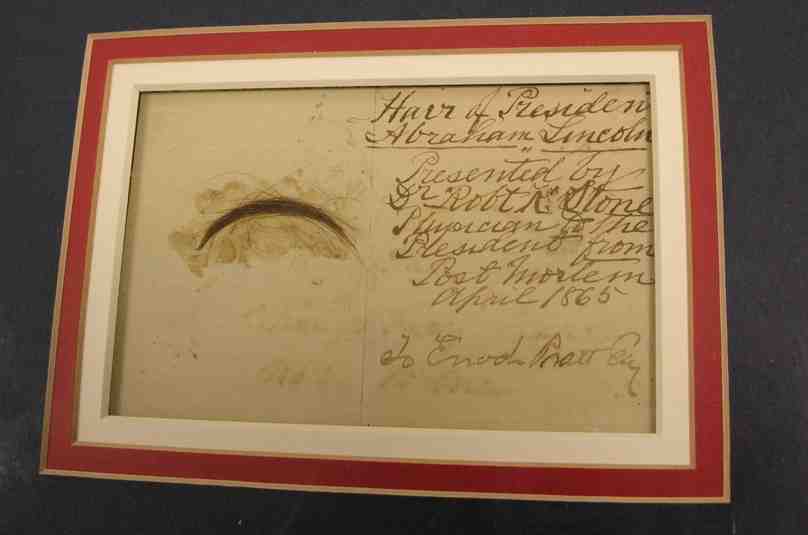 Hair of Presiden
Abraham Lincoln
Presented by
Dr Robt K. Stone
Physician to the
President from
Post Mortem
April 1865
To Enoch Pratt Esq